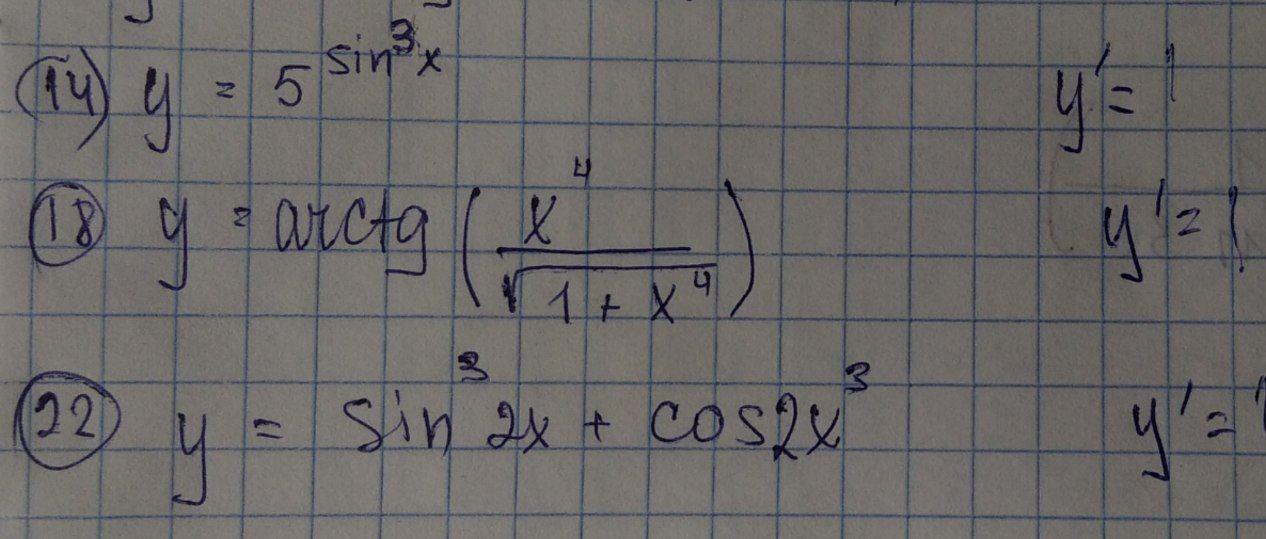 14) y = 5^{sin^3 x} y' =
18 y = arctg ( x^4 / √(1 + x^4) ) y' =
22 y = sin^3 2x + cos2x^3 y' =